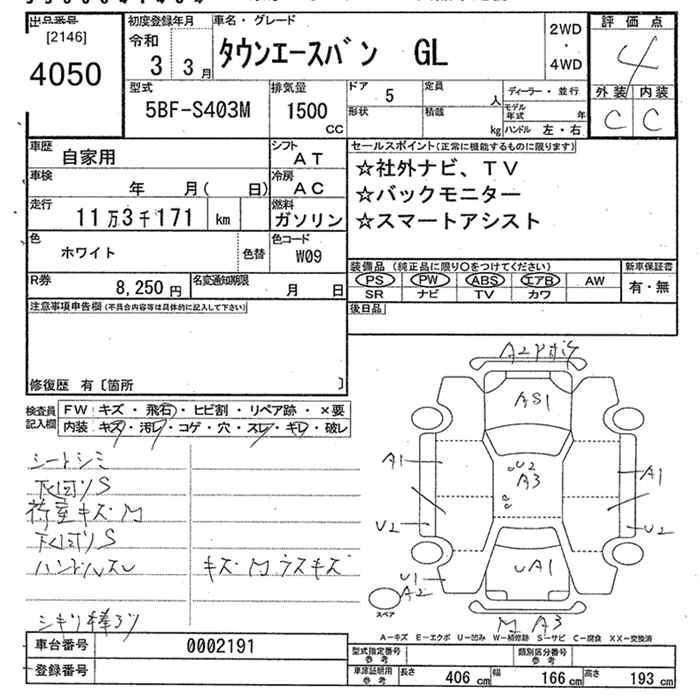 出品番号 初度登録年月 車名・グレード 2WD 評価点
[2146] 令和 タウンエースバン GL ・ 4
4050 3 3月 4WD 外装 内装
型式 排気量 ドア 5 定員 人 ディーラー・並行 C C
5BF-S403M 1500 CC 形状 積載 kg モデル年式 年
ハンドル 左・右
車歴 自家用 シフト AT セールスポイント(正常に機能するものに限ります)
車検 年 月( 日) 冷房 AC ☆社外ナビ、TV
走行 11万3千171 km 燃料 ガソリン ☆バックモニター
☆スマートアシスト
色 ホワイト 色替 色コード W09
装備品 (純正品に限り〇をつけてください) 新車保証書
R券 8,250円 名変通知期限 月 日 PS PW ABS エアB AW 有・無
SR ナビ TV カワ
注意事項申告欄(不具合内容等は具体的に記入して下さい) 後日品
修復歴 有〔箇所 〕
検査員記入欄 FW キズ・飛石・ヒビ割・リペア跡・×要
内装 キズ・汚レ・コゲ・穴・スレ・キレ・破レ
シートシミ
下回リS
荷室キズM
下回リS
ハンドルスレ キズM ウスキズ
A2
AS1
U2
A3
A1 A1
U2 U2
UA1
U1
A2
スペア
M A3
A-キズ E-エクボ U-凹み W-補修跡 S-サビ C-腐食 XX-交換済
車台番号 0002191 型式指定番号 参考 類別区分番号 参考
登録番号 車庫証明用 参考 長さ 406 cm 幅 166 cm 高さ 193 cm